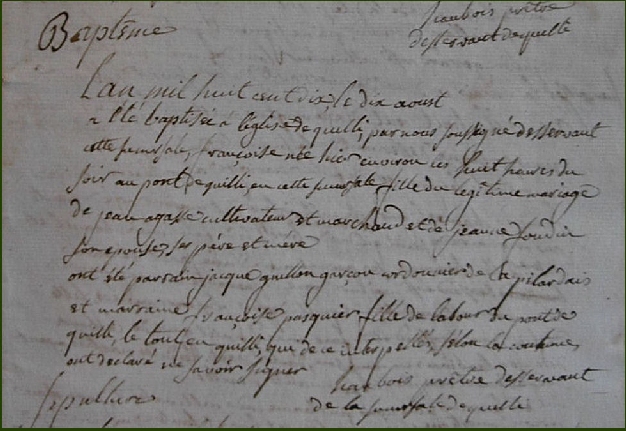 harbois prêtre
Baptême
desservant de quilli
L'an mil huit cent dix, le dix aoust
a été baptisée à l'église de quilli, par nous soussigné desservant
cette sucursale, francoise née hier environ les huit heures du
soir au pont de quilli, en cette sucursale fille du légitime mariage
de jean agasse cultivateur et marchand et de jeanne
son épouse, ses père et mère
ont été parrain jacque guillon garçon cordounier de la pilardais
et marraine francoise pasquier fille de labour du pont de
quilli, le tout en quilli, qui de ce interpellés, sélon la coutume,
ont déclaré ne savoir signer
harbois prêtre desservant
de la sucursale de quilli
Sepulture